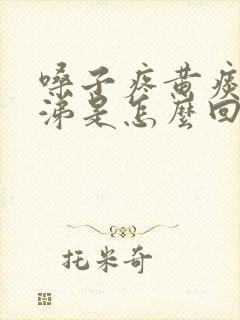 嗓子疼黄痰
涕是怎麼回
托米奇